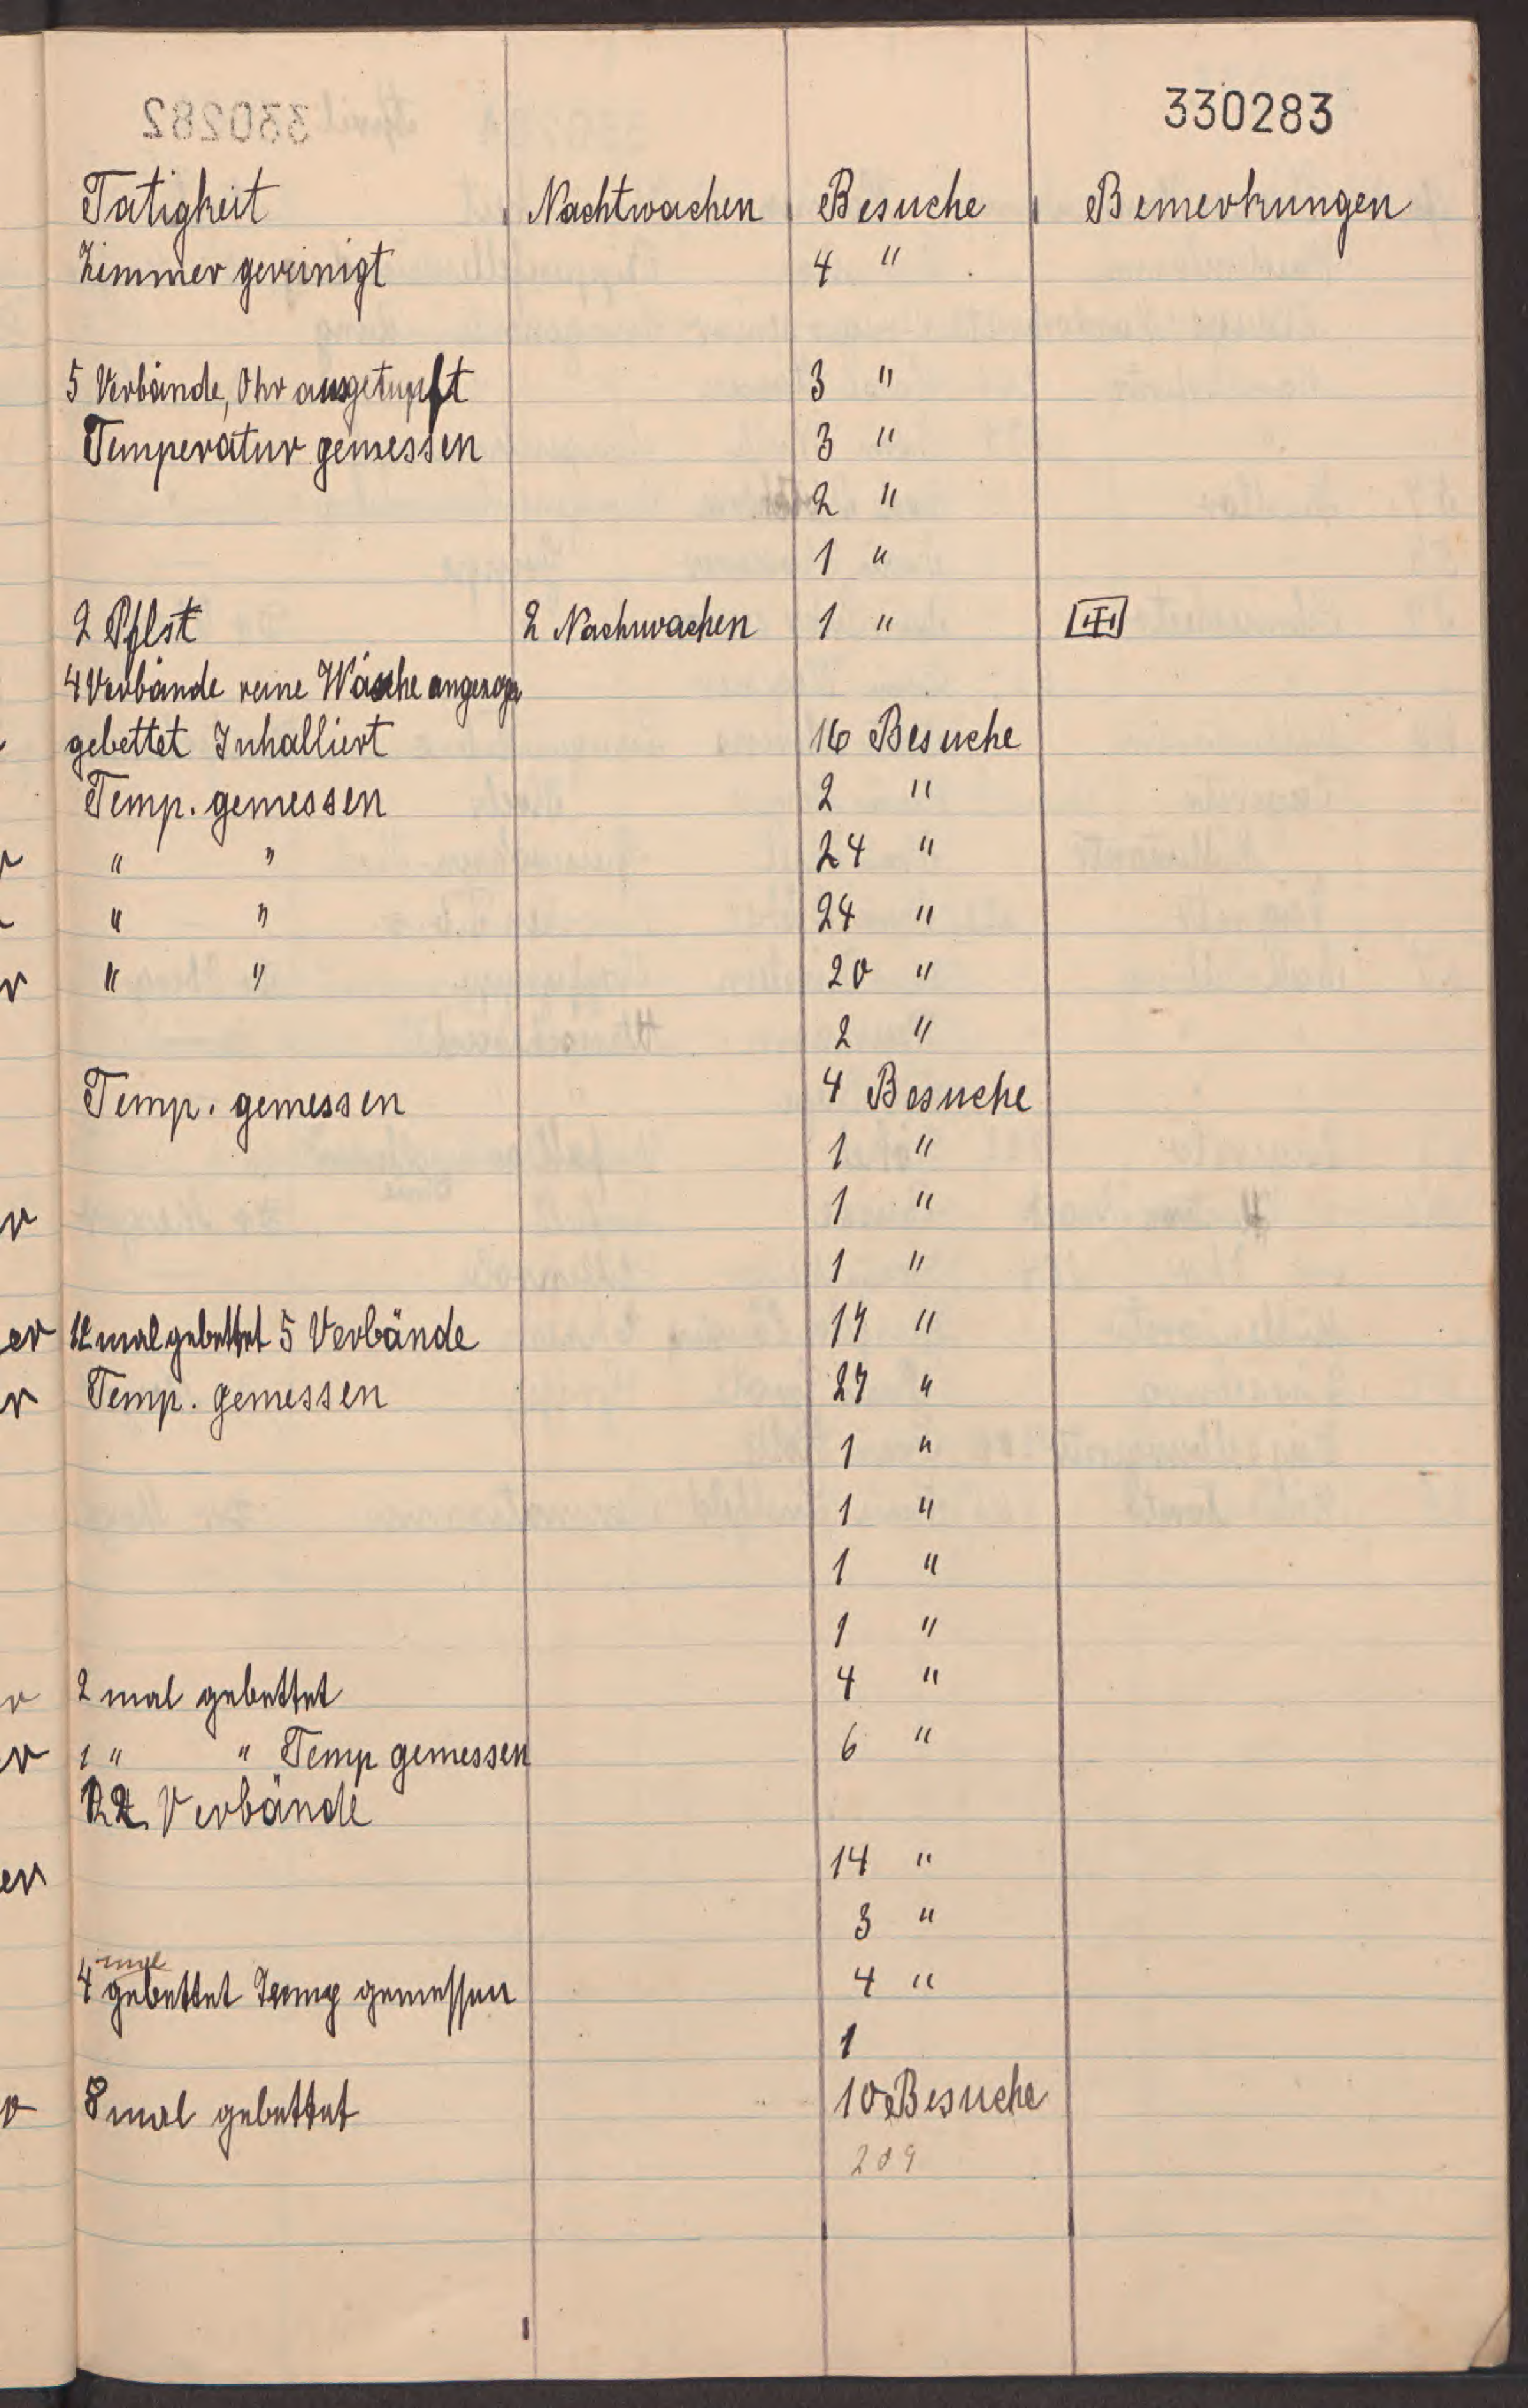 330282
330283
Tätigkeit Nachtwachen Besuche Bemerkungen
Zimmer gereinigt 4 "
5 Verbände, Ohr ausgetupft 3 "
Temperatur gemessen 3 "
2 "
1 "
2 Pflst 2 Nachwachen 1 "
4 Verbände reine Wäsche angezoge
gebettet Inhalliert 16 Besuche
Temp. gemessen 2 "
" " 24 "
" " 24 "
" " 20 "
2 "
Temp. gemessen 4 Besuche
1 "
1 "
1 "
er 12 mal gebettet 5 Verbände 17 "
Temp. gemessen 27 "
1 "
1 "
1 "
1 "
2 mal gebettet 4 "
1 " " Temp gemessen 6 "
Verbände
er 14 "
3 "
4 mal gebettet Temp gemessen 4 "
1
8 mal gebettet 10 Besuche
209